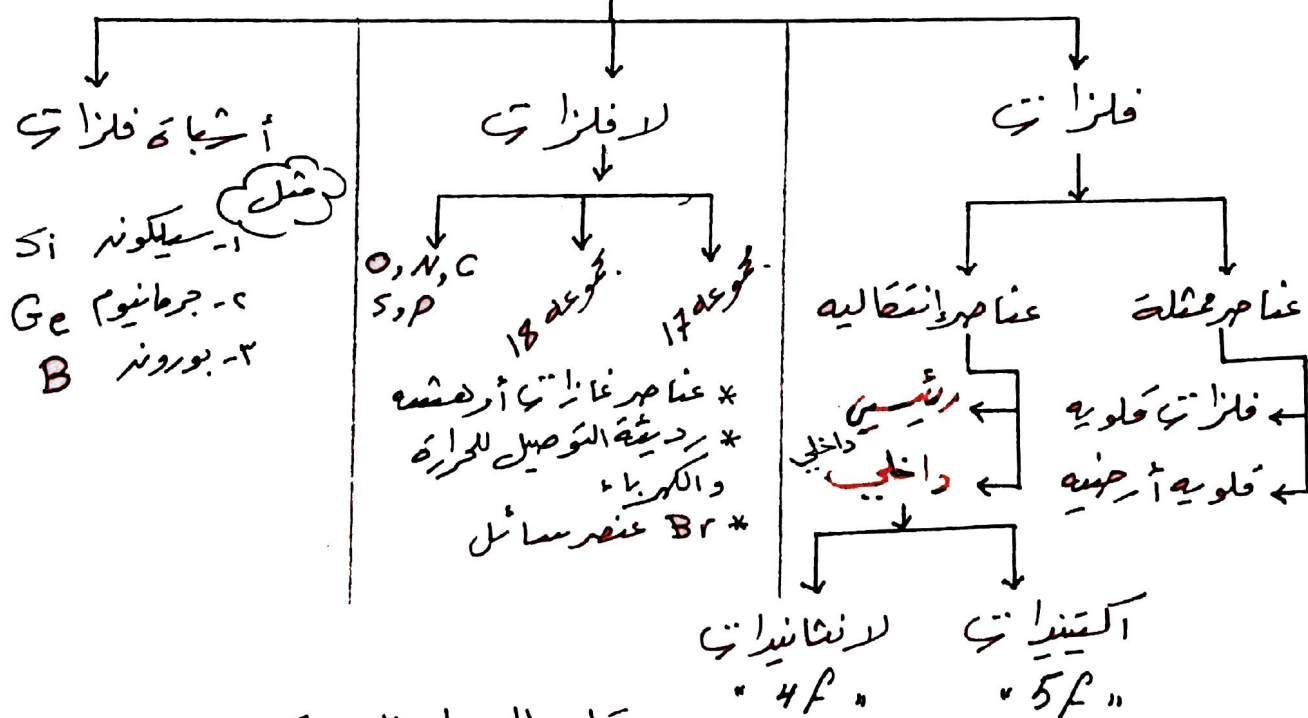 فلزات
لا فلزات
أشباة فلزات
عناصر ممثلة
فلزات قلويه
قلويه أرضيه
عناصر إنتقاليه
رئيسي
داخلي
داخلي
اكتينيدات
" 5f "
لانثانيدات
" 4f "
مجموعه 17
مجموعه 18
O, N, C
S, P
* عناصر غازات أو هشه
* رديئة التوصيل للحرارة
والكهرباء
* Br عنصر سائل
مثل
١- سيلكون Si
٢- جرمانيوم Ge
٣- بورون B